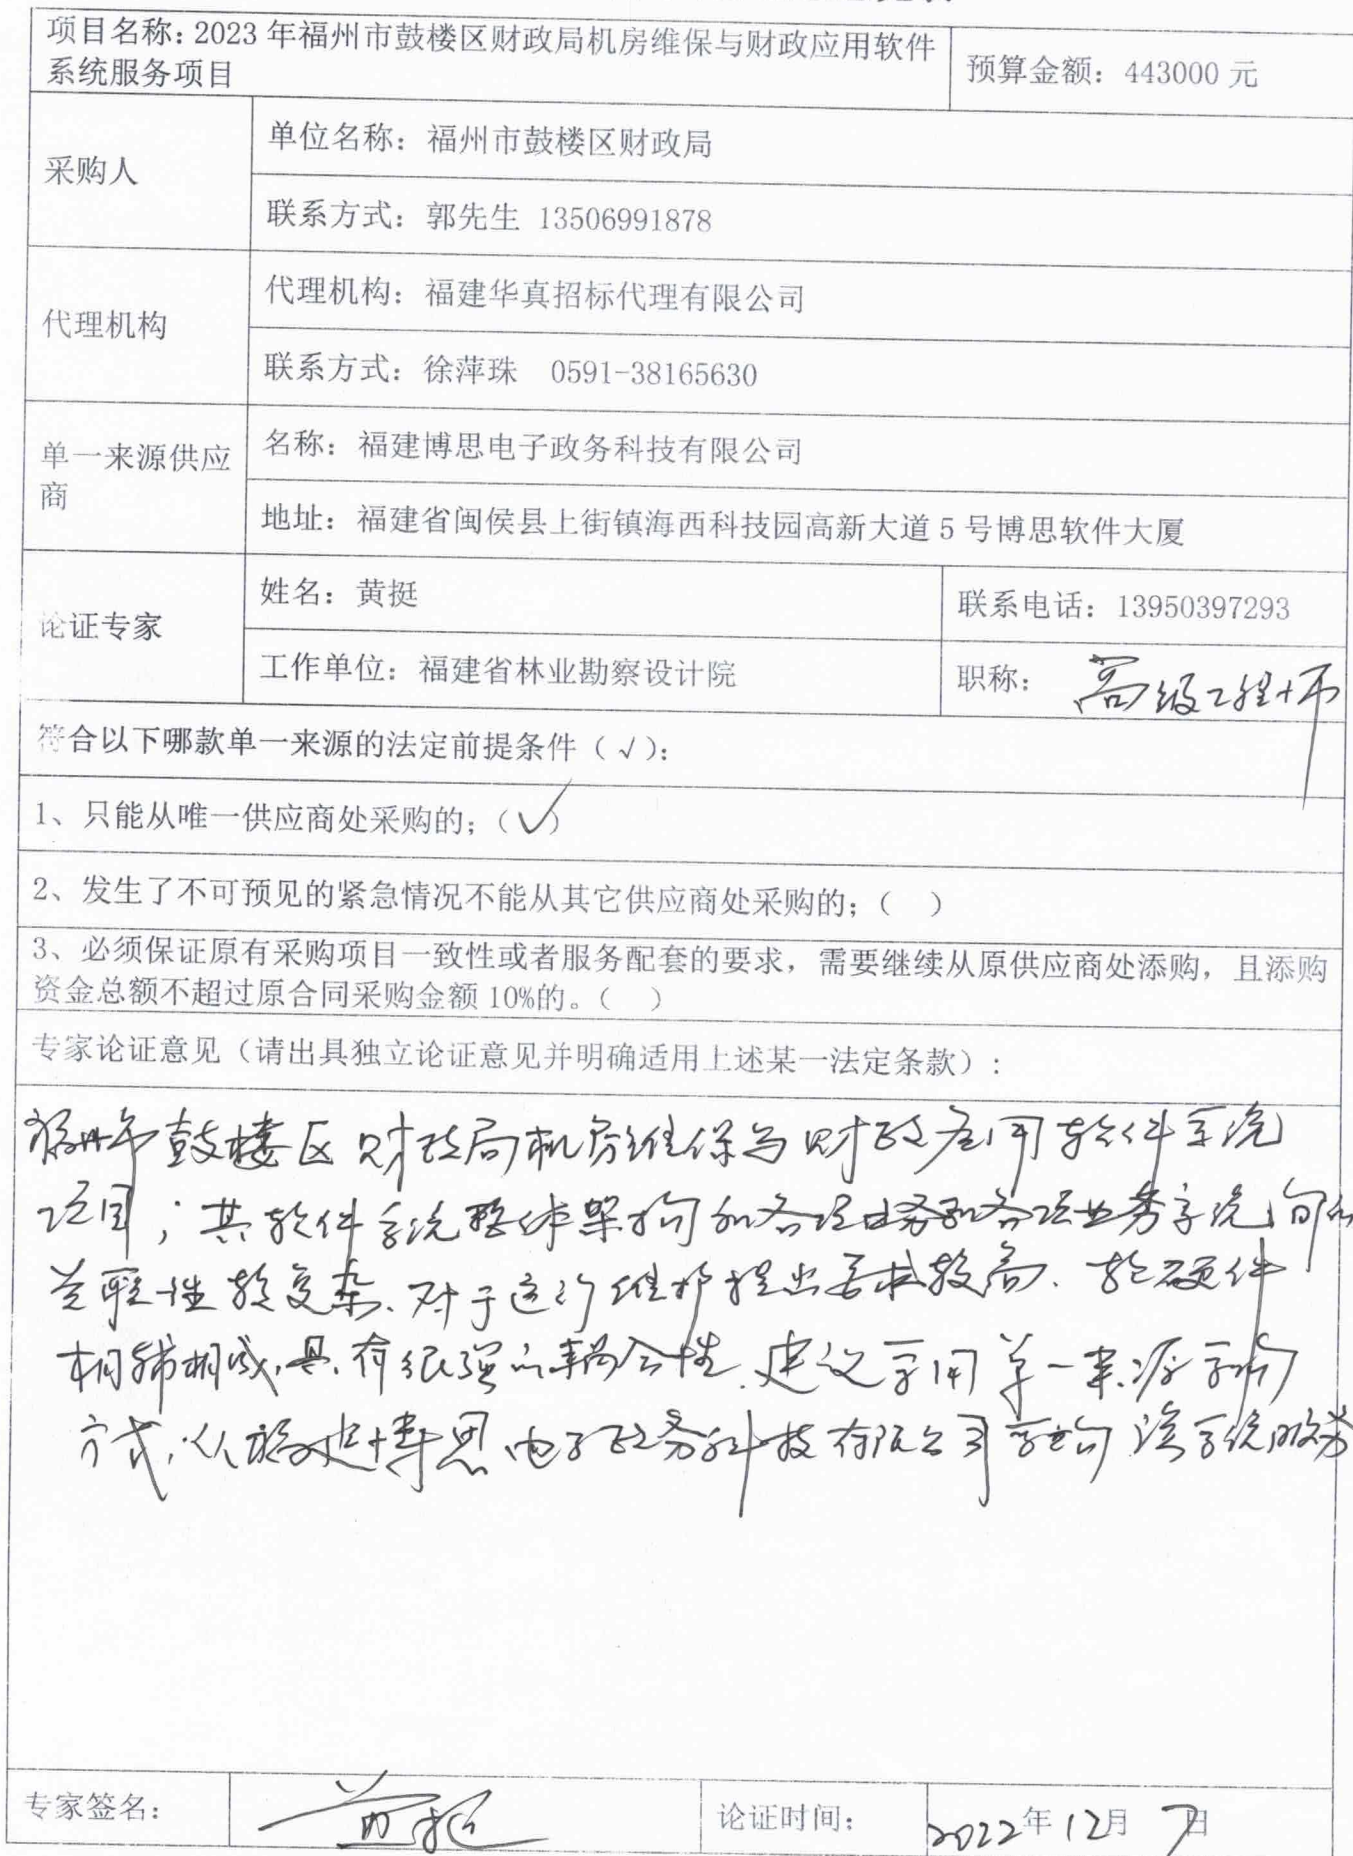 项目名称：2023 年福州市鼓楼区财政局机房维保与财政应用软件
系统服务项目
预算金额：443000 元
采购人
单位名称：福州市鼓楼区财政局
联系方式：郭先生 13506991878
代理机构
代理机构：福建华真招标代理有限公司
联系方式：徐萍珠 0591-38165630
单一来源供应
商
名称：福建博思电子政务科技有限公司
地址：福建省闽侯县上街镇海西科技园高新大道 5 号博思软件大厦
论证专家
姓名：黄挺
联系电话：13950397293
工作单位：福建省林业勘察设计院
职称：高级工程师
符合以下哪款单一来源的法定前提条件（√）：
1、只能从唯一供应商处采购的；（√）
2、发生了不可预见的紧急情况不能从其它供应商处采购的；（ ）
3、必须保证原有采购项目一致性或者服务配套的要求，需要继续从原供应商处添购，且添购
资金总额不超过原合同采购金额 10%的。（ ）
专家论证意见（请出具独立论证意见并明确适用上述某一法定条款）：
福州市鼓楼区财政局机房维保与财政应用软件系统
项目；其软件系统整体架构和各项业务和各项业务系统间的
关联性较复杂、对于运行维护提出要求较高、软硬件
相辅相成，具有很强的耦合性，建议采用单一来源采购
方式，从福建博思电子政务科技有限公司采购该系统服务
专家签名：
黄挺
论证时间：
2022年12月7日